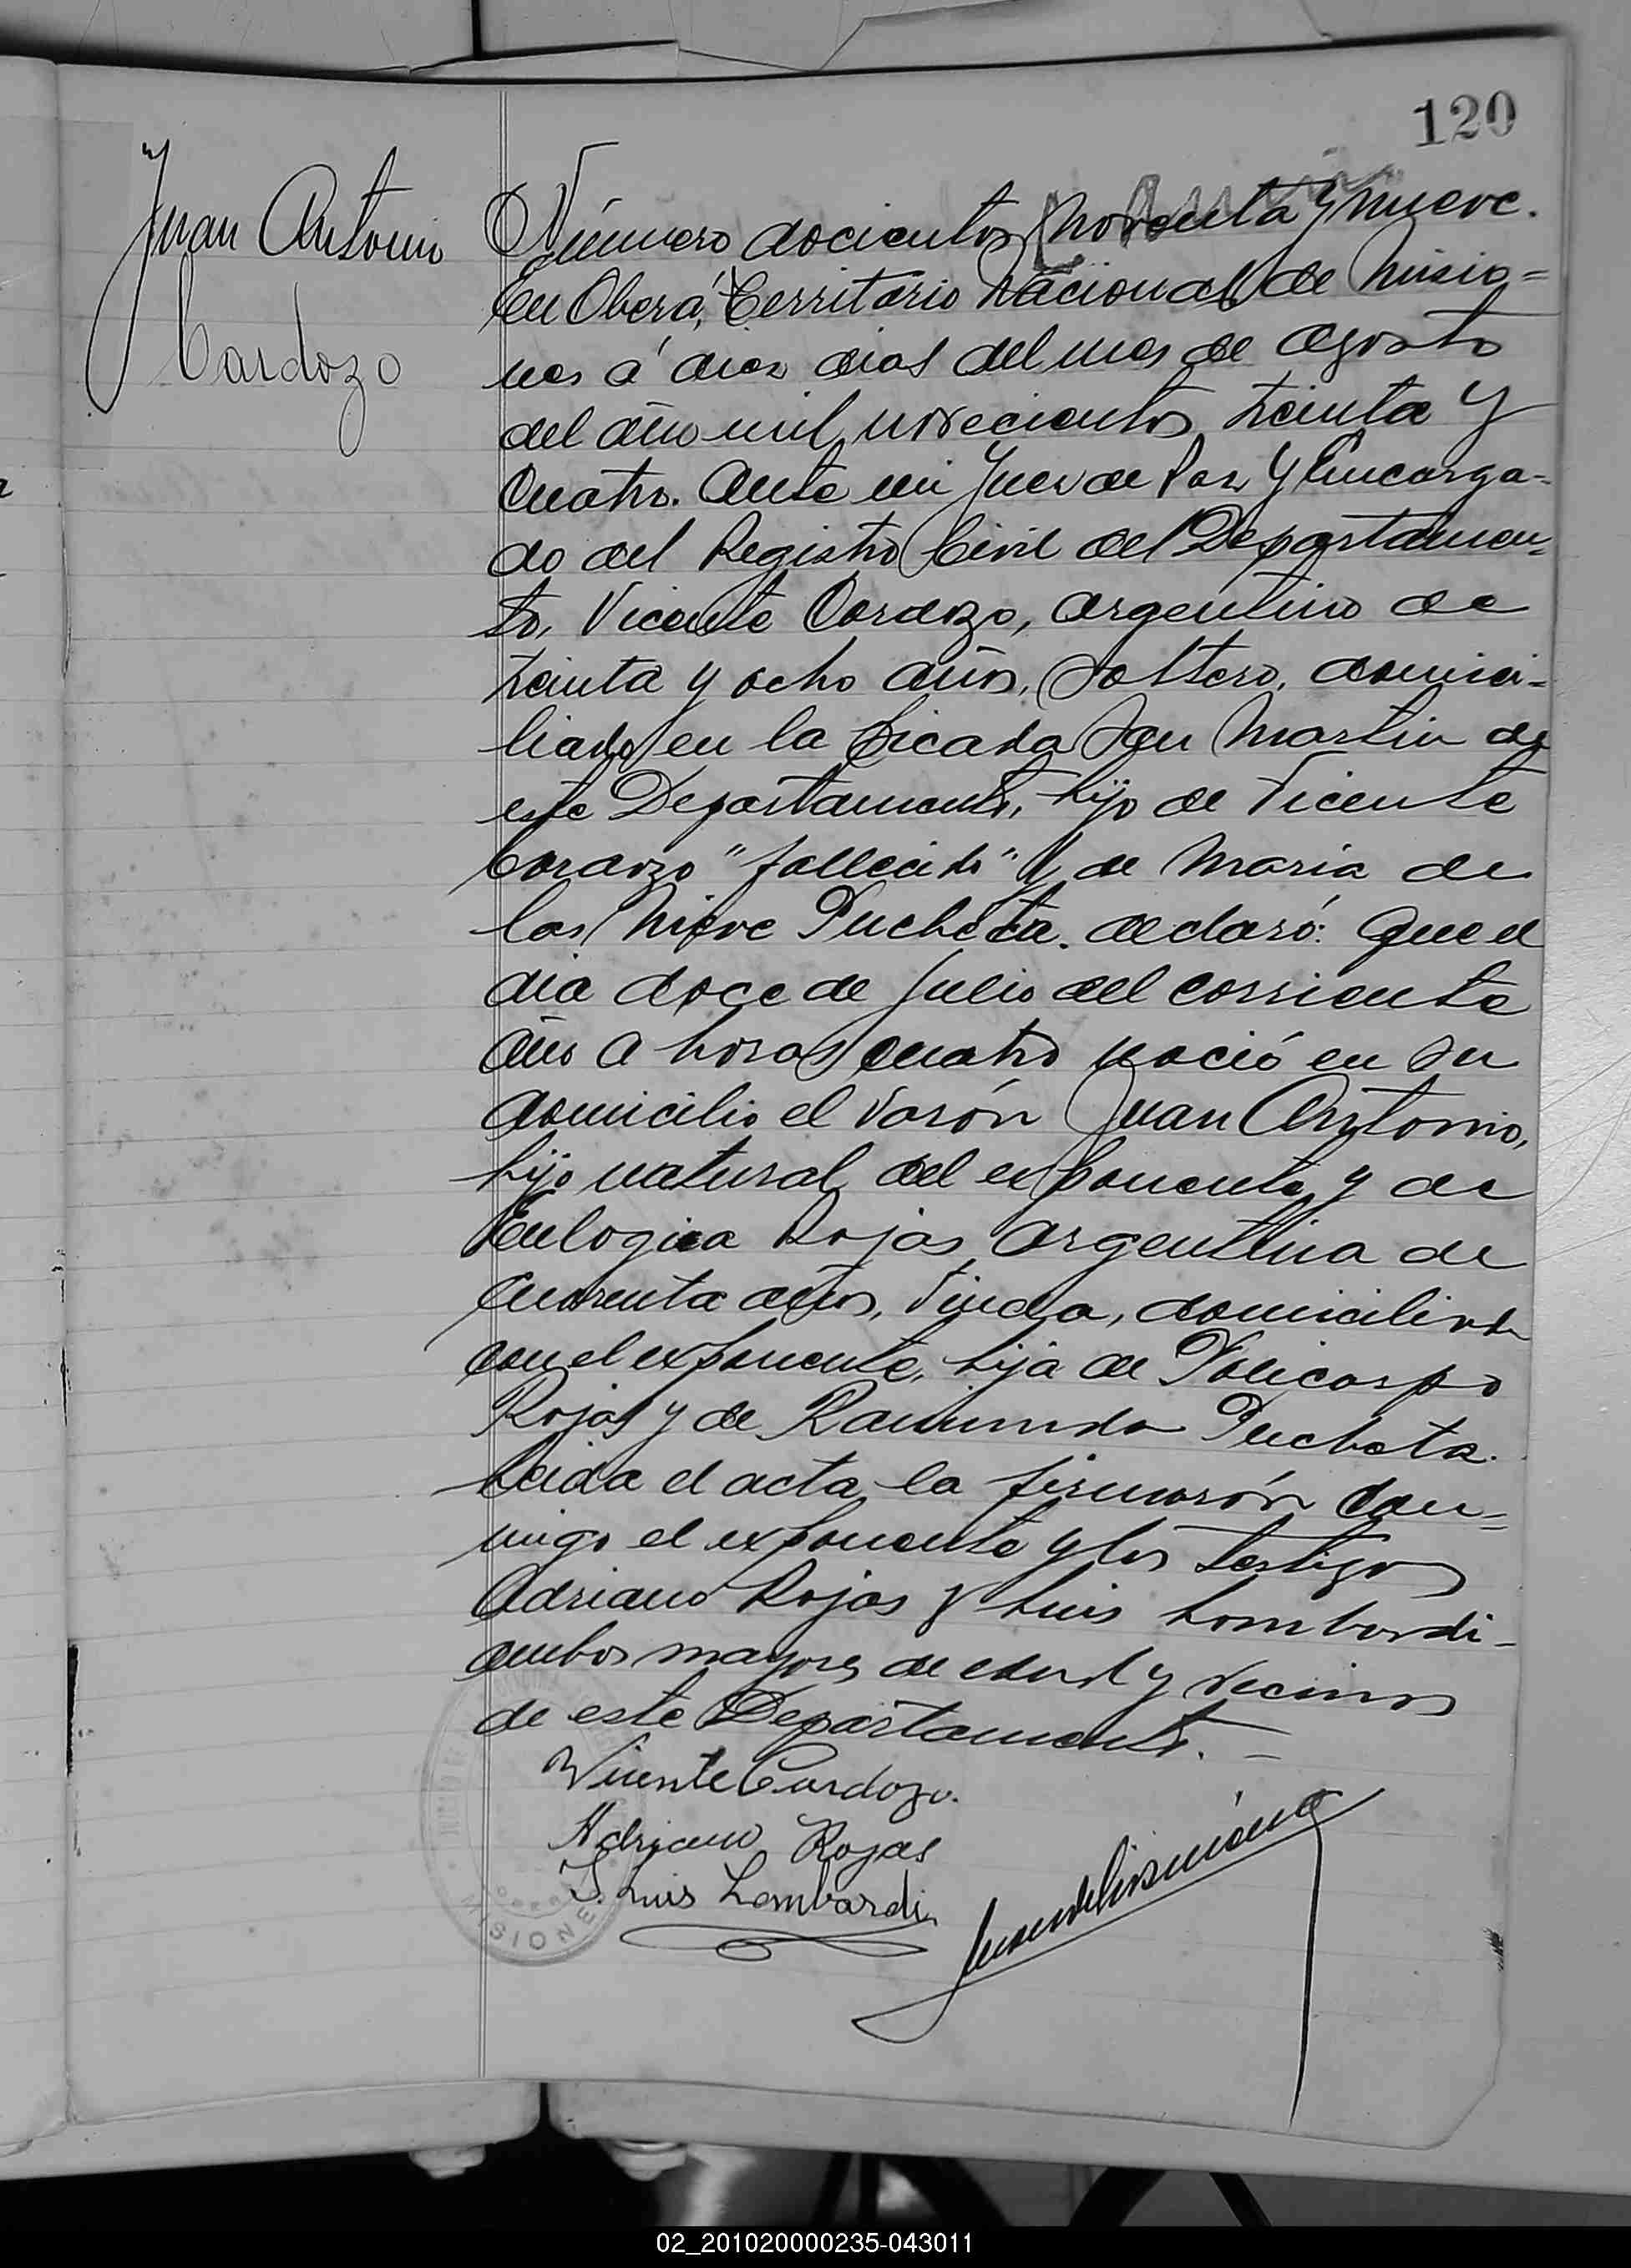 120
Juan Antonio
Cardozo
Número docientos noventa y nueve.
En Oberá, Territorio Nacional de Misio=
nes á diez dias del mes de Agosto
del año mil novecientos treinta y
Cuatro. Ante mi Juez de Paz y Encarga-
do del Registro Civil del Departamen-
to, Vicente Cardozo, argentino de
treinta y ocho años, Soltero, domici-
liado en la Picada San Martin de
este Departamento, hijo de Vicente
Cardozo "fallecido" y de Maria de
las Nieve Pucheta. declaró: Que el
dia doce de Julio del corriente
año a horas cuatro nació en su
domicilio el varón Juan Antonio,
hijo natural del exponente y de
Eulogia Rojas argentina de
Cuarenta años, viuda, domiciliada
con el exponente, hija de Policarpo
Rojas y de Raimunda Pucheta.
Leida el acta la firmarón con=
migo el exponente y los testigos
Adriano Rojas y Luis Lombardi-
ambos mayores de edad y vecinos
de este Departamento. -
Vicente Cardozo.
Adriano Rojas
S. Luis Lombardi
MISIONE
02_201020000235-043011